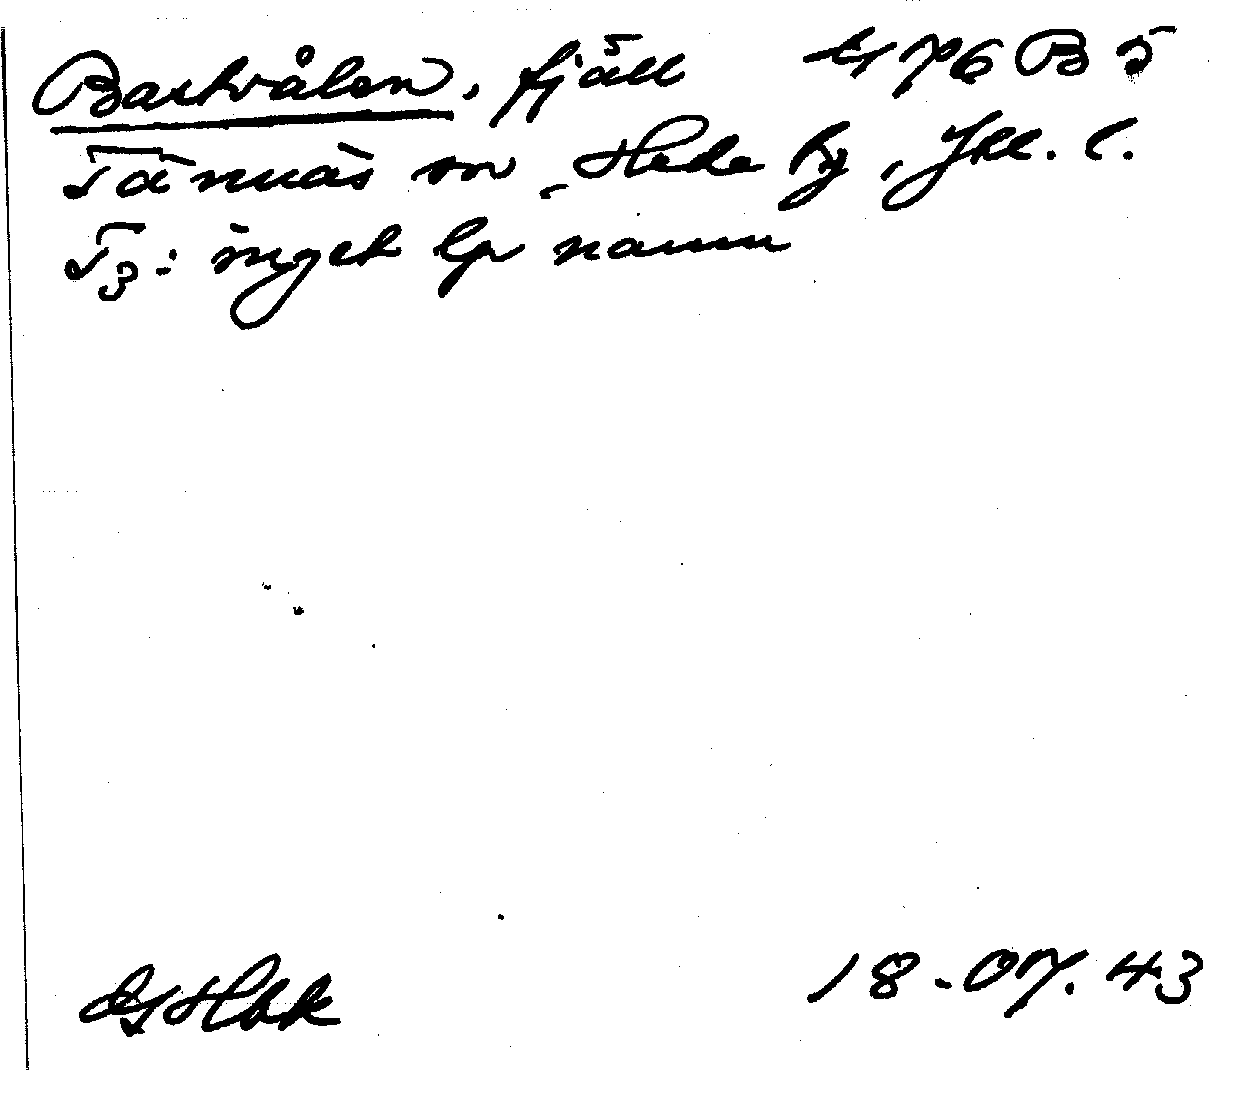 Bastvålen, fjäll 476 B 5
Tännäs sn, Hede by, Jtl. l.
T3: inget lp namn
18-07.43